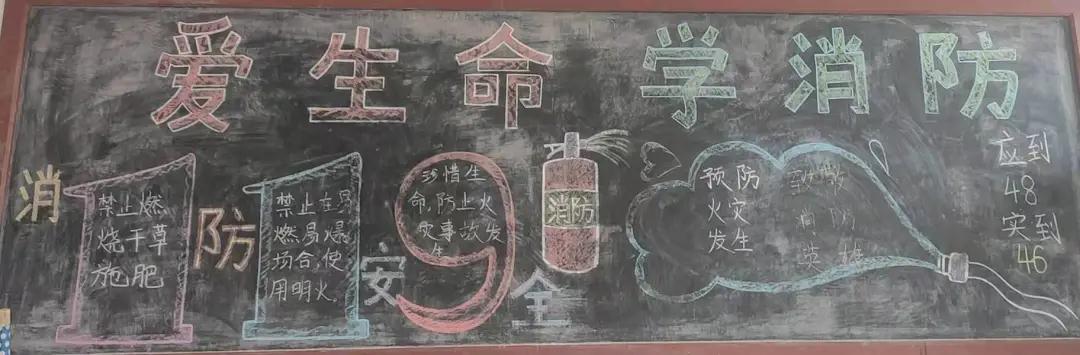 爱生命 学消防
消
禁止燃
烧干草
施肥
防
禁止在易
燃易爆
场合,使
用明火。
安
珍惜生
命,防止火
灾事故发
生
全
消防
预防
火灾
发生
致敬
消防
英雄
应到
48
实到
46